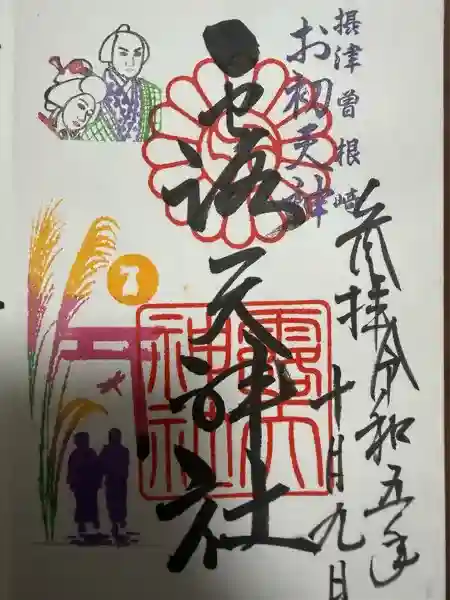 摂津曽根崎
お初天神
奉拝 令和五年
十月九日
露天神社
露天神社